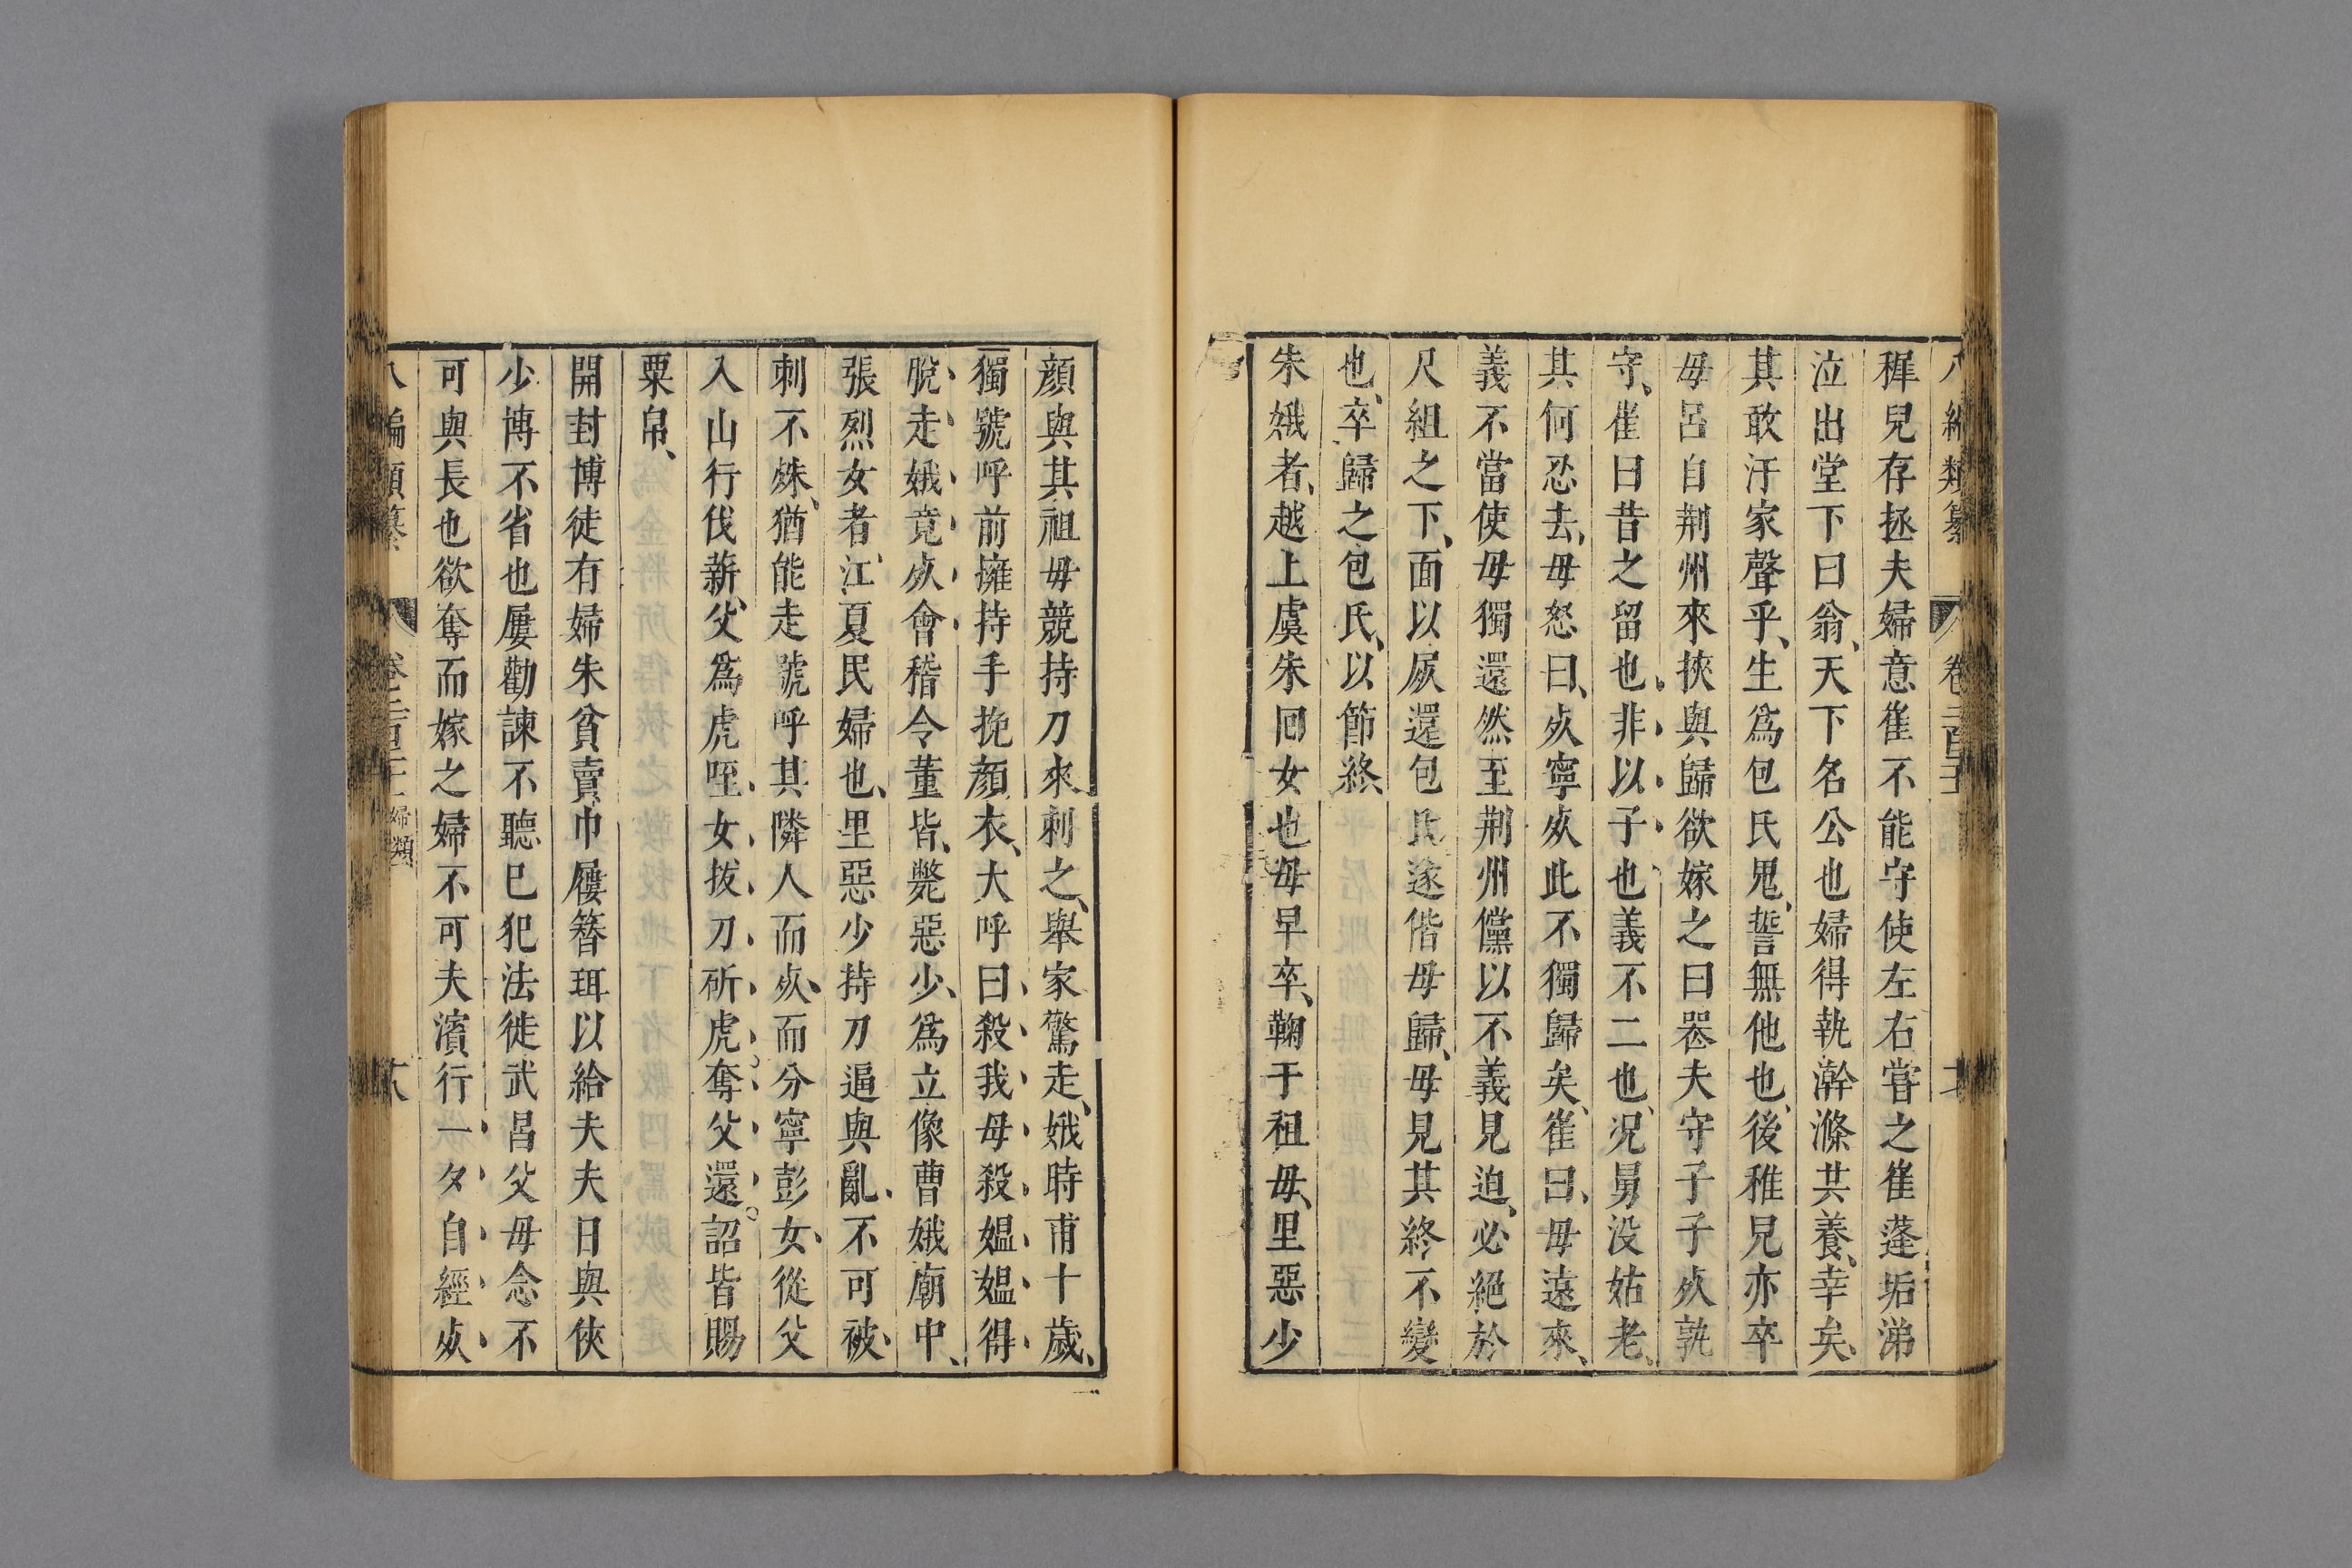 稺兒存拯夫婦意崔不能守使左右嘗之崔蓬垢涕
泣出堂下曰翁、天下名公也婦得執澣滌共養、幸矣、
其敢汙家聲乎、生爲包氏鬼、誓無他也、後稚兒亦卒
毋呂自荆州來挾與歸欲嫁之曰喪夫守子子死孰
守、崔曰昔之留也、非以子也義不二也、况舅没姑老、
其何忍去、毋怒曰、死寧死此不獨歸矣、崔曰、毋遠來、
義不當使毋獨還然至荆州儻以不義見迫、必絕於
尺組之下、面以屍還包氏遂偕毋歸、毋見其終不變
也、卒歸之包氏、以節終、
朱娥者、越上虞朱回女也毋早卒、鞠于祖毋、里惡少
顔與其祖毋競持刀來刺之、舉家驚走、娥時甫十歲、
獨號呼前擁持手挽顔衣、大呼曰殺我毋殺媼媼得
脫走娥竟死會稽令董皆、斃惡少、爲立像曹娥廟中、
張烈女者、江夏民婦也、里惡少持刀逼與亂、不可被
刺不殊、猶能走號呼其隣人而死、而分寧彭女、從父
入山行伐薪、父爲虎咥、女拔刀斫虎奪父還。詔皆賜
粟帛、
開封博徒有婦朱貧賣巾屨簪珥以給夫夫日與俠
少博不省也屢勸諫不聽已犯法徙武昌父毋念不
可與長也欲奪而嫁之婦不可夫濱行一夕自經死
八編類纂 卷 婦類 六